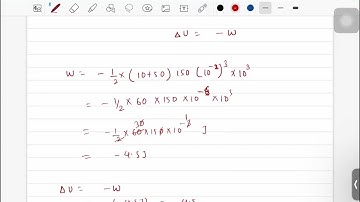 ΔU = -W
W = - 1/2 × (10+50) 150 (10⁻²)³ × 10³
= - 1/2 × 60 × 150 × 10⁻⁶ × 10³
= - 1/2 × 60 30 × 150 × 10⁻¹ J
= - 4.5 J
ΔU = -W